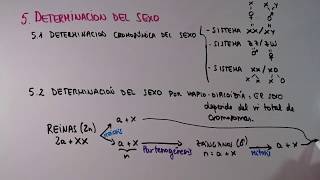 5. DETERMINACION DEL SEXO
♀ ♂
X X X Y
5.1 DETERMINACION CROMOSÓMICA DEL SEXO
- SISTEMA XX/XY
- SISTEMA ZZ/ZW
♂ ♀
- SISTEMA XX/XO
♀ ♂
5.2 DETERMINACIÓN DEL SEXO POR HAPLO-DIPLOIDÍA: EL SEXO
depende del nº total de
cromosomas.
REINAS (2n)
2a + XX
meiosis
a + x
a + x
n
Partenogénesis
ZANGANOS (♂)
n = a + x
Mitosis
a + x